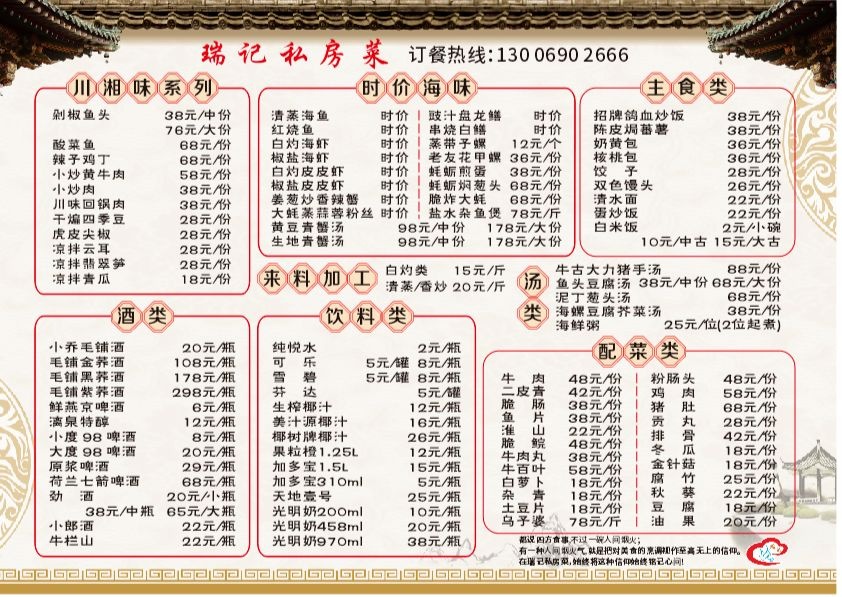 瑞记私房菜 订餐热线:130 0690 2666
川湘味系列
剁椒鱼头 38元/中份
76元/大份
酸菜鱼 68元/份
辣予鸡丁 68元/份
小炒黄牛肉 58元/份
小炒肉 38元/份
川味回锅肉 38元/份
干煸四季豆 28元/份
虎皮尖椒 28元/份
凉拌云耳 28元/份
凉拌翡翠笋 28元/份
凉拌青瓜 18元/份
时价海味
清蒸海鱼 时价
红烧鱼 时价
白灼海虾 时价
椒盐海虾 时价
白灼皮皮虾 时价
椒盐皮皮虾 时价
姜葱炒香辣蟹 时价
大蚝蒸蒜蓉粉丝 时价
豉汁盘龙鳝 时价
串烧白鳝 时价
蒸带子螺 12元/个
老友花甲螺 36元/份
蚝蛎煎蛋 38元/份
蚝蛎焖葱头 68元/份
脆炸大蚝 68元/份
盐水杂鱼煲 78元/斤
黄豆青蟹汤 98元/中份 178元/大份
生地青蟹汤 98元/中份 178元/大份
主食类
招牌鸽血炒饭 38元/份
陈皮焗蕃薯 38元/份
奶黄包 36元/份
核桃包 36元/份
饺子 28元/份
双色馒头 26元/份
清水面 22元/份
蛋炒饭 22元/份
白米饭 2元/小碗
10元/中古 15元/大古
来料加工
白灼类 15元/斤
清蒸/香炒 20元/斤
汤类
牛古大力猪手汤 88元/份
鱼头豆腐汤 38元/中份 68元/大份
泥丁葱头汤 68元/份
海螺豆腐芥菜汤 38元/份
海鲜粥 25元/位(2位起煮)
酒类
小乔毛铺酒 20元/瓶
毛铺金荞酒 108元/瓶
毛铺黑荞酒 178元/瓶
毛铺紫荞酒 298元/瓶
鲜燕京啤酒 6元/瓶
漓泉特醇 12元/瓶
小度98啤酒 8元/瓶
大度98啤酒 20元/瓶
原浆啤酒 29元/瓶
荷兰七箭啤酒 68元/瓶
劲酒 20元/小瓶
38元/中瓶 65元/大瓶
小郎酒 22元/瓶
牛栏山 22元/瓶
饮料类
纯悦水 2元/瓶
可乐 5元/罐 8元/瓶
雪碧 5元/罐 8元/瓶
芬达 5元/罐
生榨椰汁 12元/瓶
美汁源椰汁 16元/瓶
椰树牌椰汁 26元/瓶
果粒橙1.25L 12元/瓶
加多宝1.5L 15元/瓶
加多宝310ml 5元/瓶
天地壹号 25元/瓶
光明奶200ml 10元/瓶
光明奶458ml 20元/瓶
光明奶970ml 38元/瓶
配菜类
牛肉 48元/份
二皮青 42元/份
脆肠 38元/份
鱼片 38元/份
淮山 22元/份
脆鲩 48元/份
牛肉丸 38元/份
牛百叶 58元/份
白萝卜 18元/份
杂青 18元/份
土豆片 18元/份
乌予婆 78元/斤
粉肠头 48元/份
鸡肉 58元/份
猪肚 68元/份
贡丸 28元/份
排骨 42元/份
冬瓜 18元/份
金针菇 18元/份
腐竹 25元/份
秋葵 22元/份
豆腐 18元/份
油果 20元/份
都说四方食事,不过一碗人间烟火;
有一种人间烟火气,就是把对美食的烹调视作至高无上的信仰。
在瑞记私房菜,始终将这种信仰始终铭记心间!